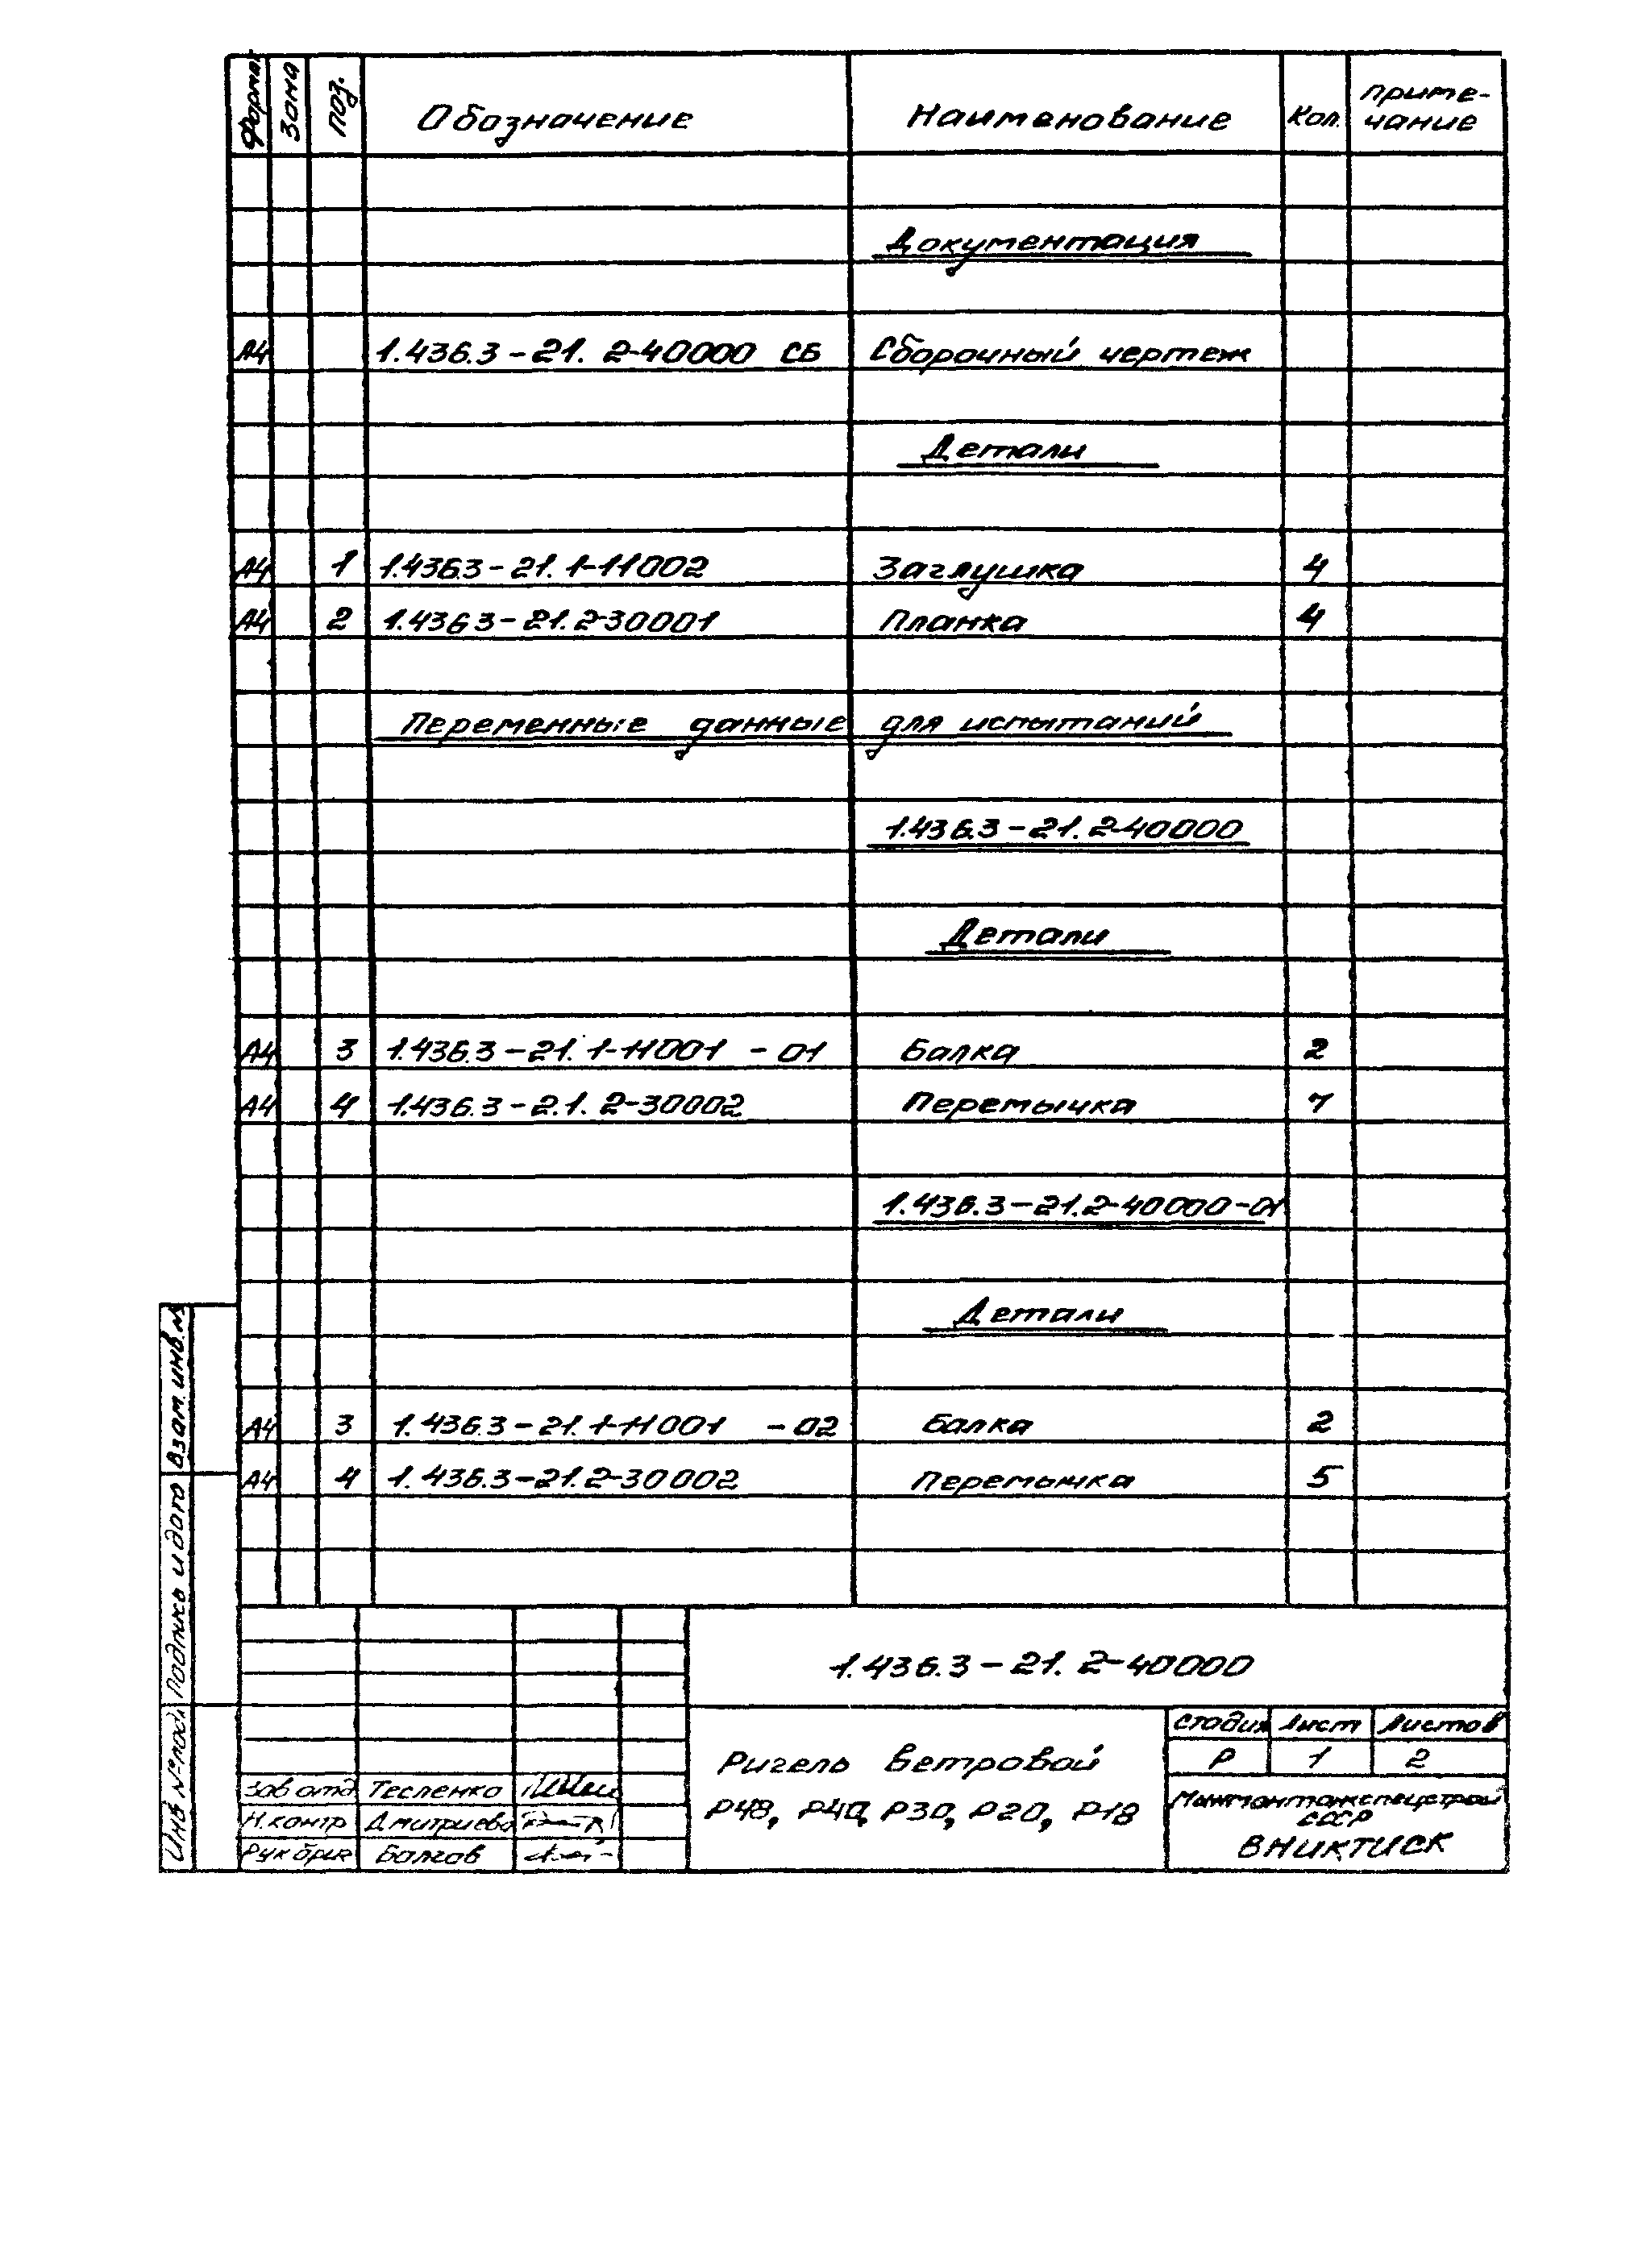 Формат Зона Поз. Обозначение Наименование Кол. Приме-
чание
Документация
А4 1.436.3-21. 2-40000 СБ Сборочный чертеж
Детали
А4 1 1.436.3-21. 1-11002 Заглушка 4
А4 2 1.436.3-21.2-30001 Планка 4
Переменные данные для испытаний
1.436.3-21. 2-40000
Детали
А4 3 1.436.3-21. 1-11001 -01 Балка 2
А4 4 1.436.3-2.1. 2-30002 Перемычка 7
1.436.3-21.2-40000-01
Детали
А4 3 1.436.3-21.1-11001 -02 Балка 2
А4 4 1.436.3-21.2-30002 Перемычка 5
Взам. инв. №
Подпись и дата
Инв № подл
1.436.3-21. 2-40000
Ригель ветровой
Р48, Р40, Р30, Р20, Р18
стадия Лист Листов
Р 1 2
Минмонтажспецстрой
СССР
ВНИКТИСК
Зав отд Тесленко
Н.контр Дмитриева
Рук бриг Болгов